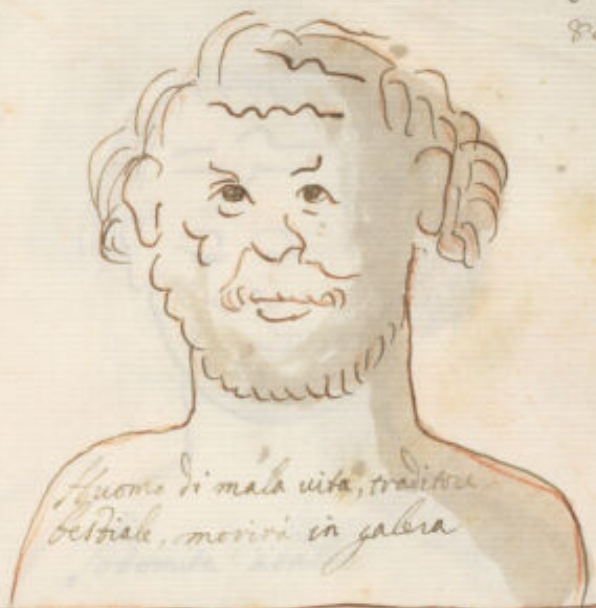 Huomo di mala vita, traditore
bestiale, morirà in galera